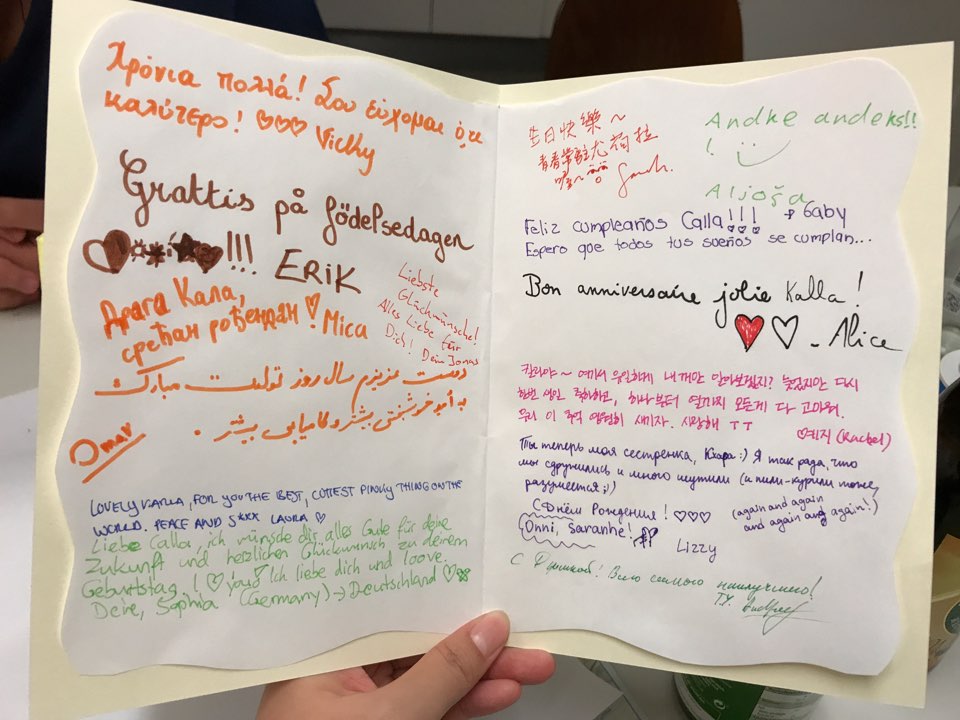 Χρόνια πολλά! Σου εύχομαι ότι
καλύτερο! ♡♡♡ Vicky
Grattis på födelsedagen
!!! ERIK
Драга Кала,
срећан рођендан! Mica
Liebste
Glückwünsche!
Alles Liebe für
Dich! Dein Jonas
دوست عزیزم سال روز تولدت مبارک
به امید خوشبختی بیشتر و کامیابی بیشتر.
Omar
LOVELY KARLA, FOR YOU THE BEST, CUTTEST PINKY THING ON THE
WORLD. PEACE AND S*XX LAURA ♡
Liebe Calla, ich wünsche dir alles Gute für deine
Zukunft und herzlichen Glückwunsch zu deinem
Geburtstag! ♡ you ♡ Ich liebe dich und loove.
Deine, Sophia (Germany) → Deutschland ♡
生日快樂~
青春常駐尤

Andke andeks!!
!
Aljoša
Feliz cumpleaños Calla!!! Gaby
Espero que todos tus sueños se cumplan...
Bon anniversaire jolie Kalla!
♥♡ - Alice
칼라야~ 여기서 유일하게 내꺼만 알아보겠지? 늦었지만 다시
한번 생일 축하하고, 하나부터 열까지 모든게 다 고마워.
우리 이 추억 영원히 새기자. 사랑해 ㅜㅜ
♡예지 (Rachel)
Ты теперь моя сестренка, :) Я так рада, что
мы сдружились и много шутили (и пили-курили тоже,
разумеется ;))
С Днём Рождения! ♡♡♡ (again and again
and again and again!)
Onni, saranhe! Lizzy
С Днюхой! Всего самого наилучшего!